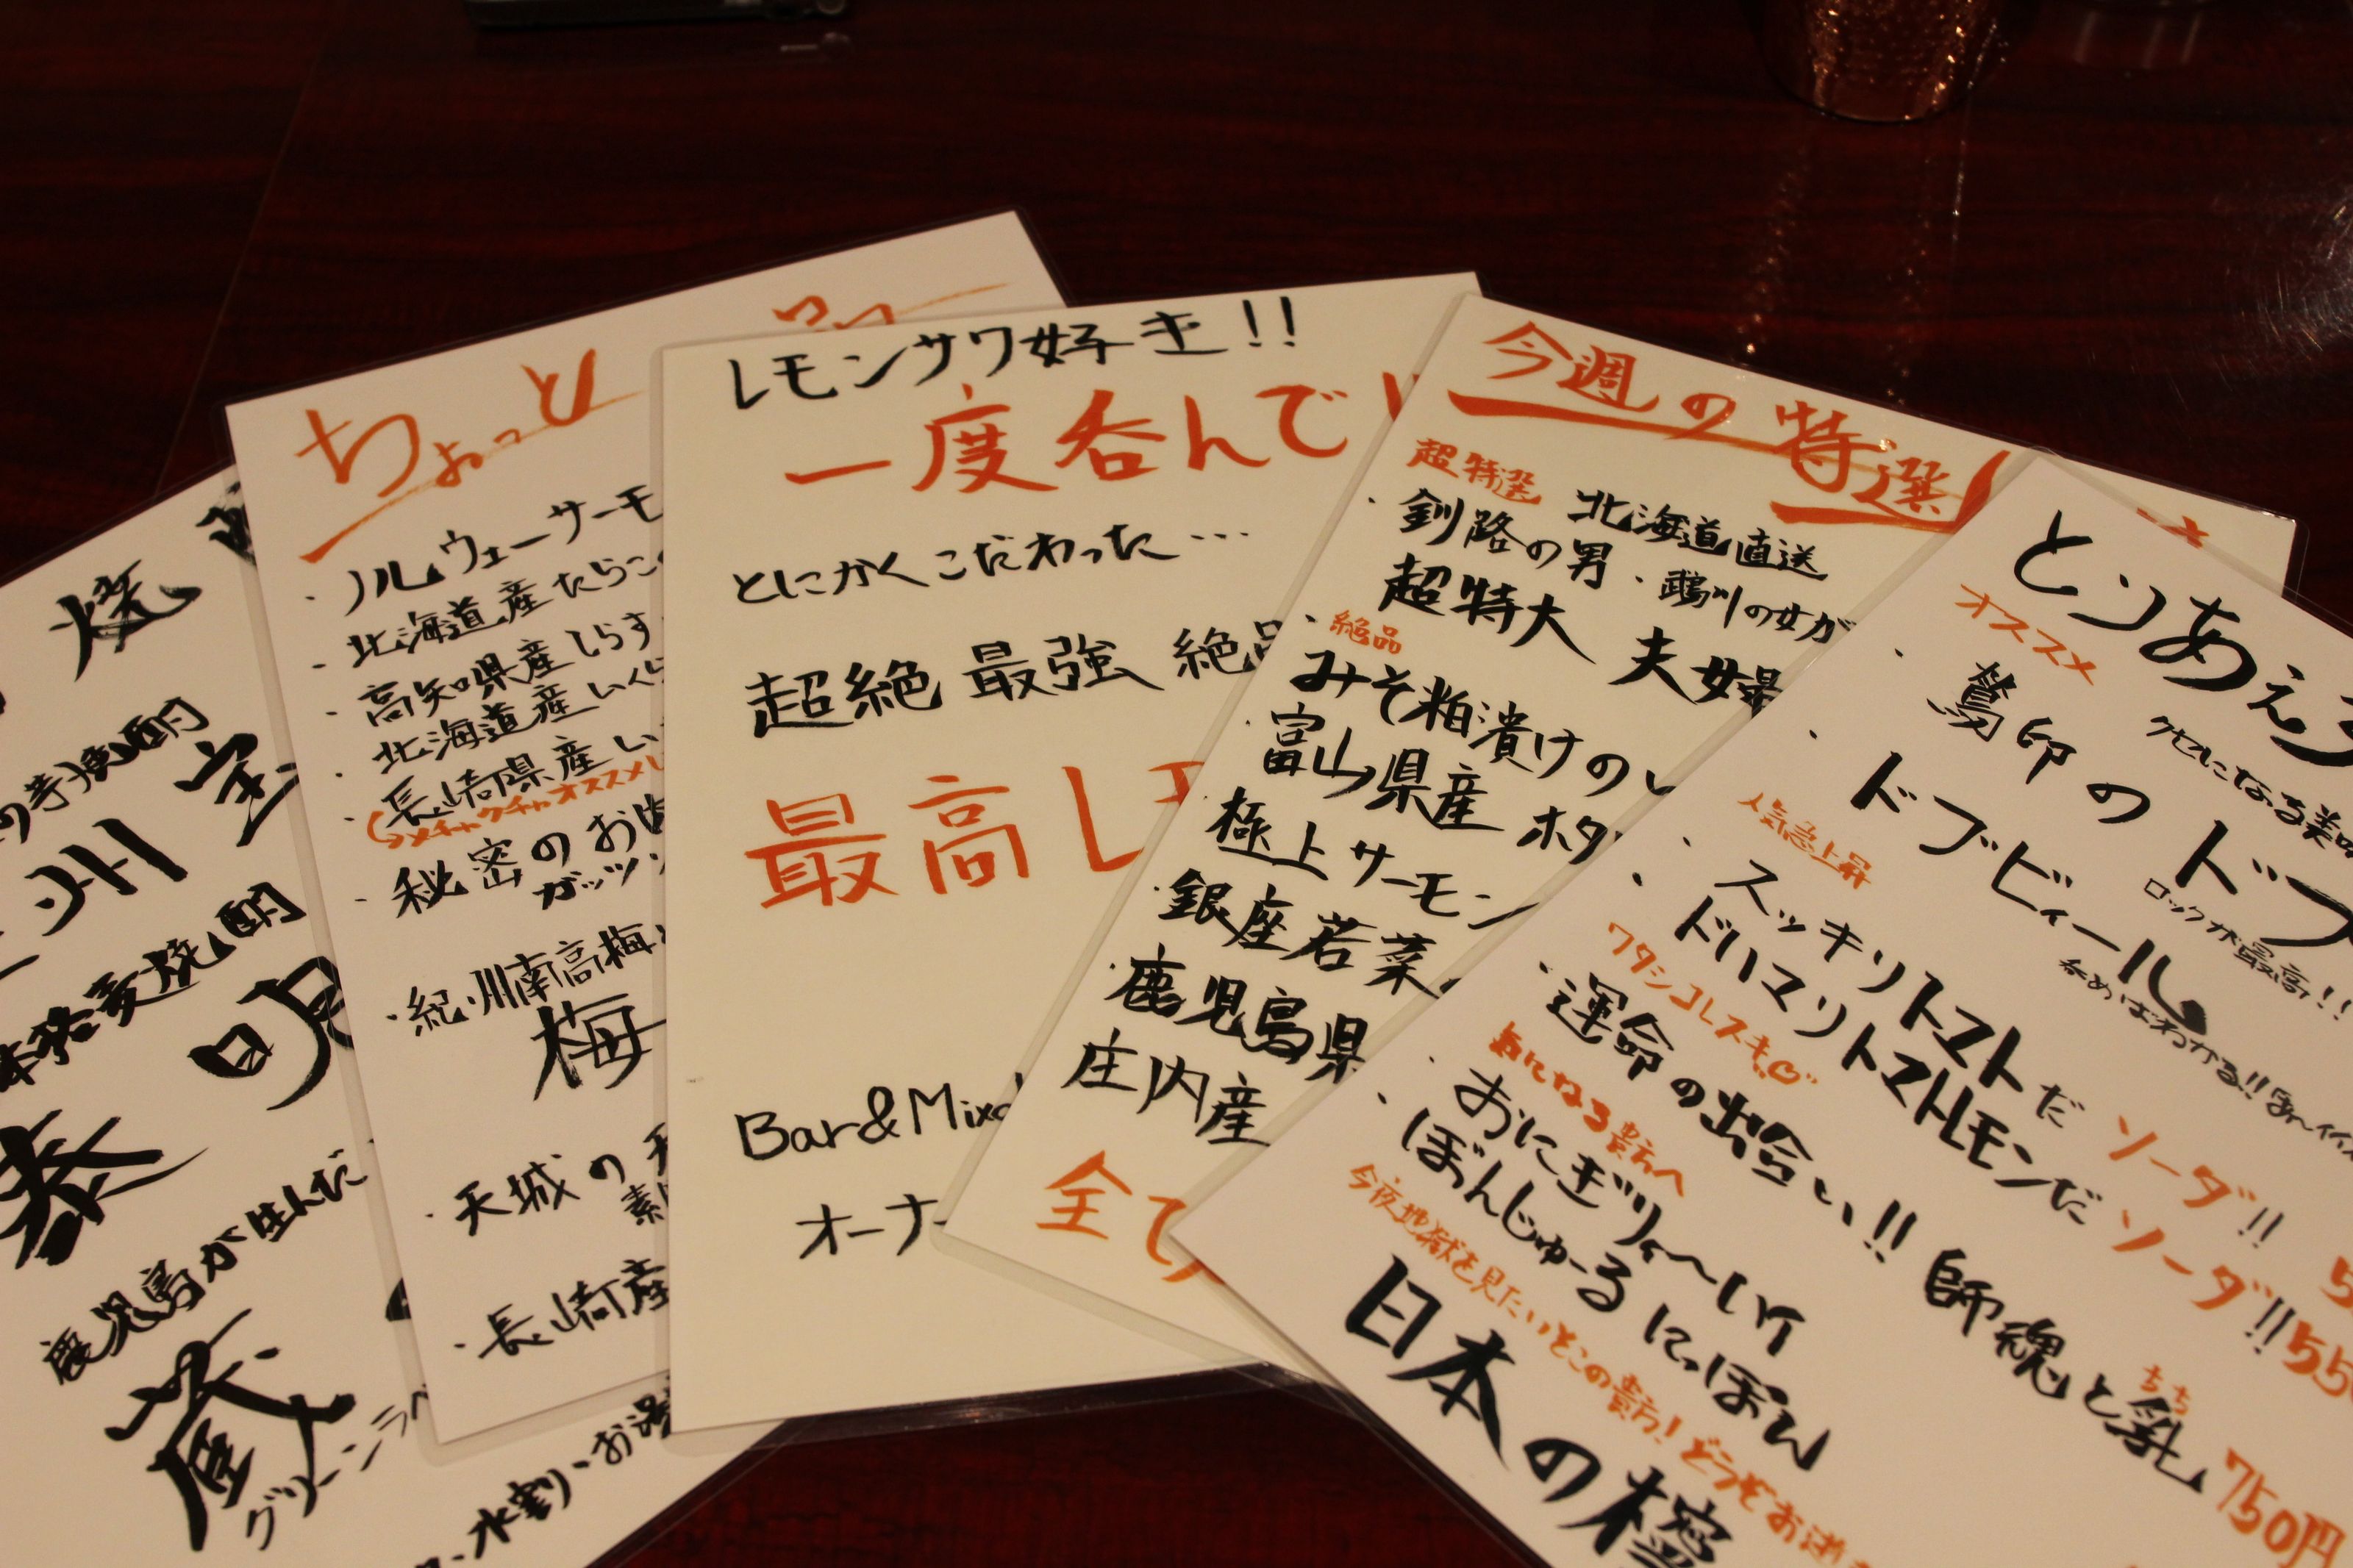 焼
芋焼酎
州 宝
本格麦焼酎
明
泰
鹿児島が生んだ
蔵
グリーンラベ
水割り・お湯
ちょっと
・ノルウェーサーモ
・北海道産たらこ
・高知県産しらす
・北海道産いくら
・長崎県産い
メチャクチャオススメ
・秘密のお
ガッツ
・紀州南高梅
梅
・天城の天
・長崎産
レモンサワ好き!!
一度呑んで
とにかくこだわった…
超絶 最強 絶品
最高レモ
Bar&Mix
オーナ
今週の特選
超特選 北海道直送
・釧路の男・鵡川の女が
超特大 夫婦
・絶品
みそ粕漬けのし
富山県産 ホタ
極上サーモン
・銀座若菜
・鹿児島県
庄内産
全て
とりあえず
オススメ クセになる美味
・鶯印のドブ
ロックが最高!!
・ドブビィール
呑めばわかる!!
人気急上昇
・スッキリトマトだ ソーダ!!
・ドリマリトマトレモンだ ソーダ!! 55
ワタシコレスキ♡
・運命の出合い!! 師魂と乳 750円
ちち
気になる貴方へ
・おにぎりィ〜しャ
・ぼんじゅーる にっぽん
今夜地獄を見たいとこの貴方!どうぞお
日本の檸